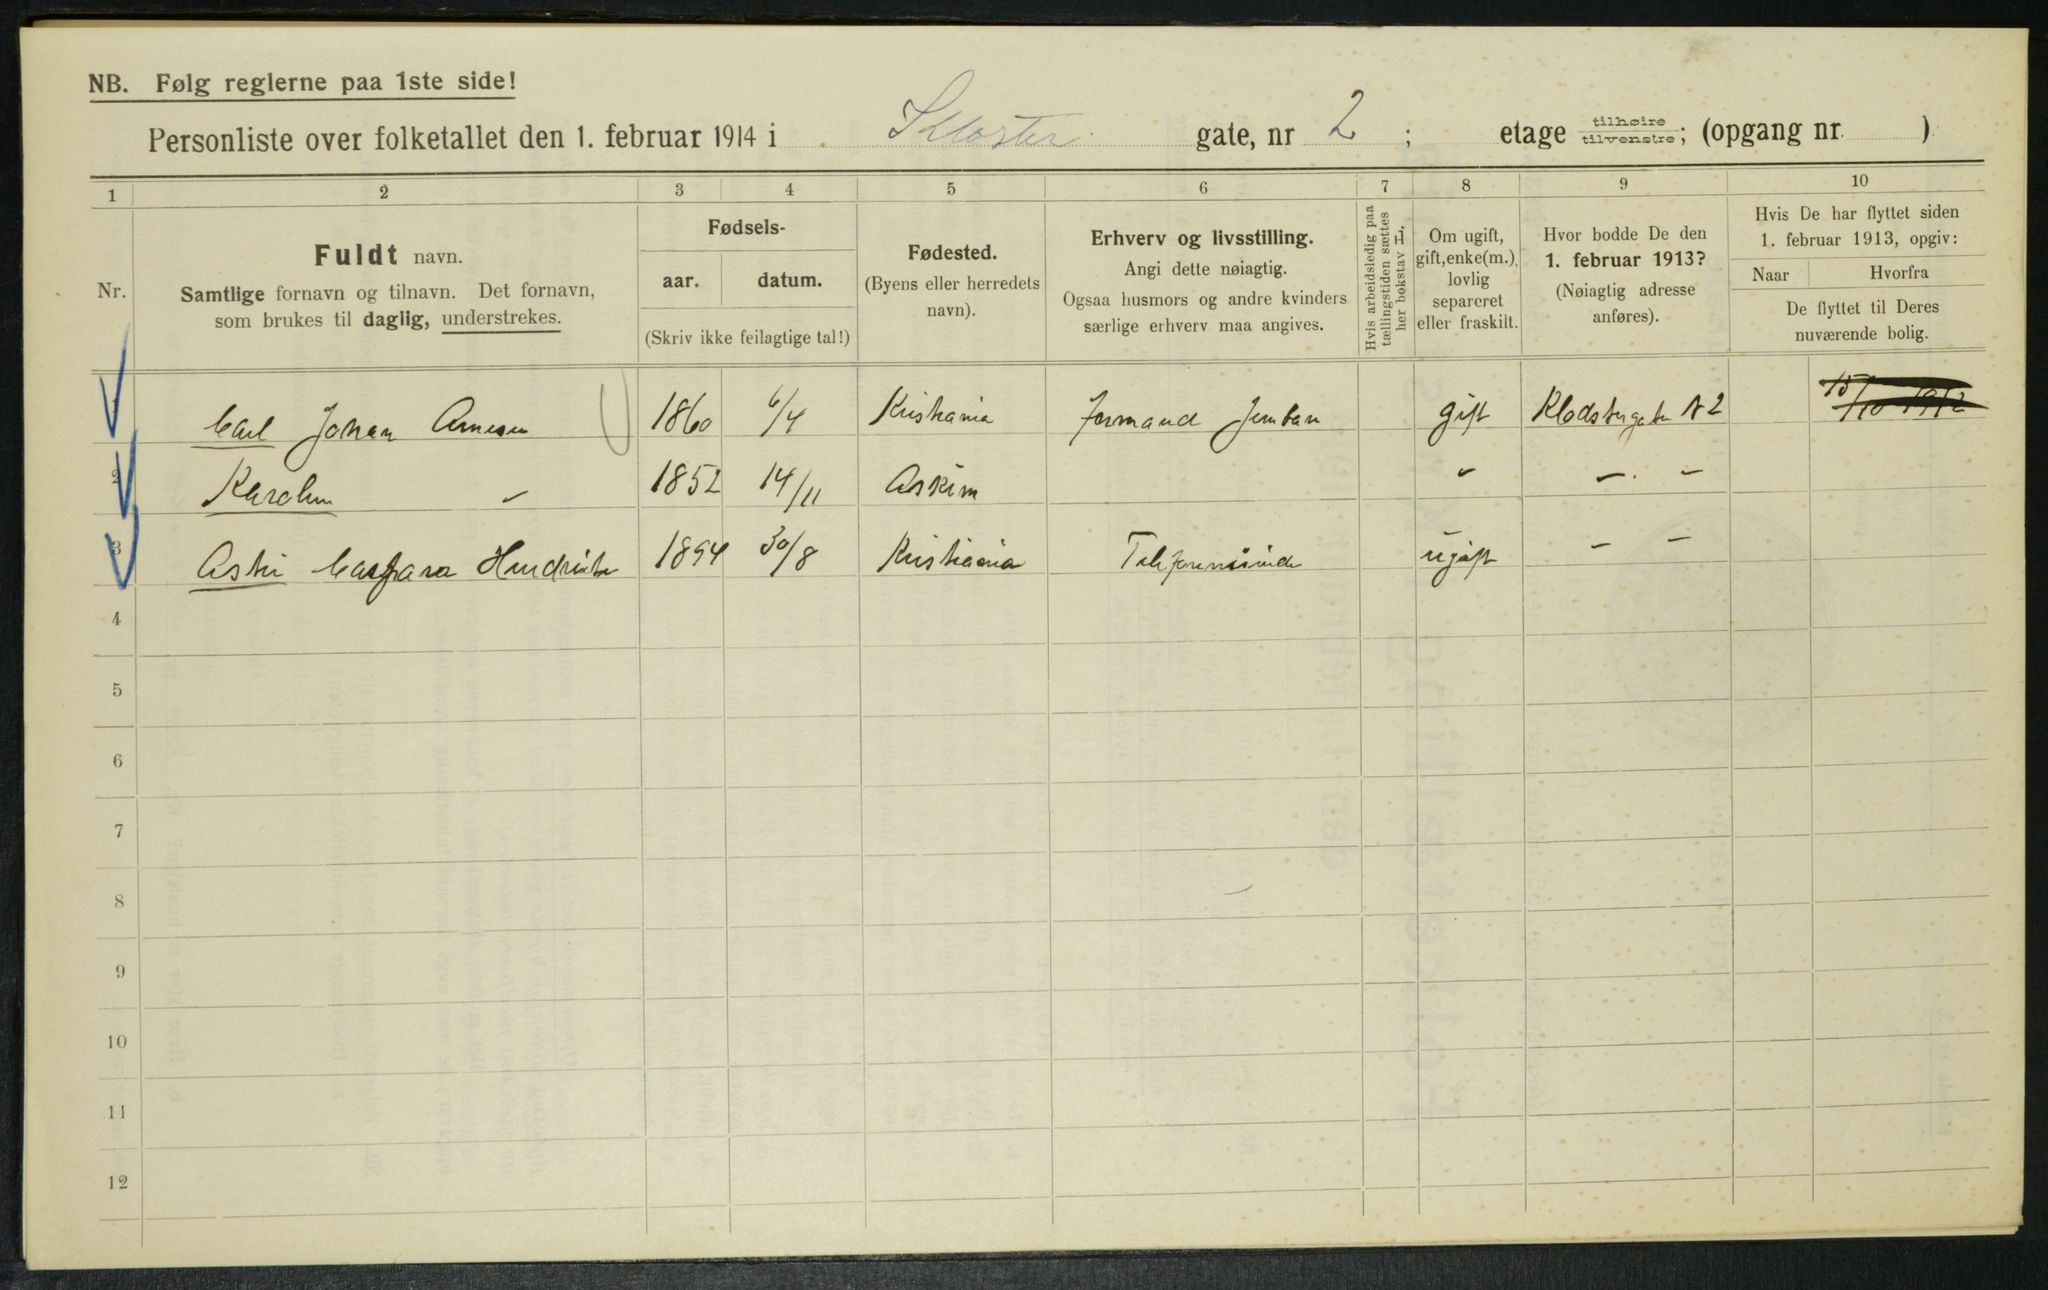 NB. Følg reglerne paa 1ste side!
Personliste over folketallet den 1. februar 1914 i Kloster gate, nr 2 ; etage tilhøire tilvenstre; (opgang nr. )
1 2 3 4 5 6 7 8 9 10
Nr.
Fuldt navn.
Samtlige fornavn og tilnavn. Det fornavn,
som brukes til daglig, understrekes.
Fødsels-
aar. datum.
(Skriv ikke feilagtige tal!)
Fødested.
(Byens eller herredets
navn).
Erhverv og livsstilling.
Angi dette nøiagtig.
Ogsaa husmors og andre kvinders
særlige erhverv maa angives.
Hvis arbeidsledig paa
tællingstiden sættes
her bokstav H.
Om ugift,
gift, enke(m.),
lovlig
separeret
eller fraskilt.
Hvor bodde De den
1. februar 1913?
(Nøiagtig adresse
anføres).
Hvis De har flyttet siden
1. februar 1913, opgiv:
Naar Hvorfra
De flyttet til Deres
nuværende bolig.
1 Carl Johan Arnesen 1860 6/4 Kristiania formand Jernban gift N 2 15/10 1912
2 1852 14/11 Askim " — . —
3 Caspara 1894 30/8 Kristiania ugift — —
4
5
6
7
8
9
10
11
12